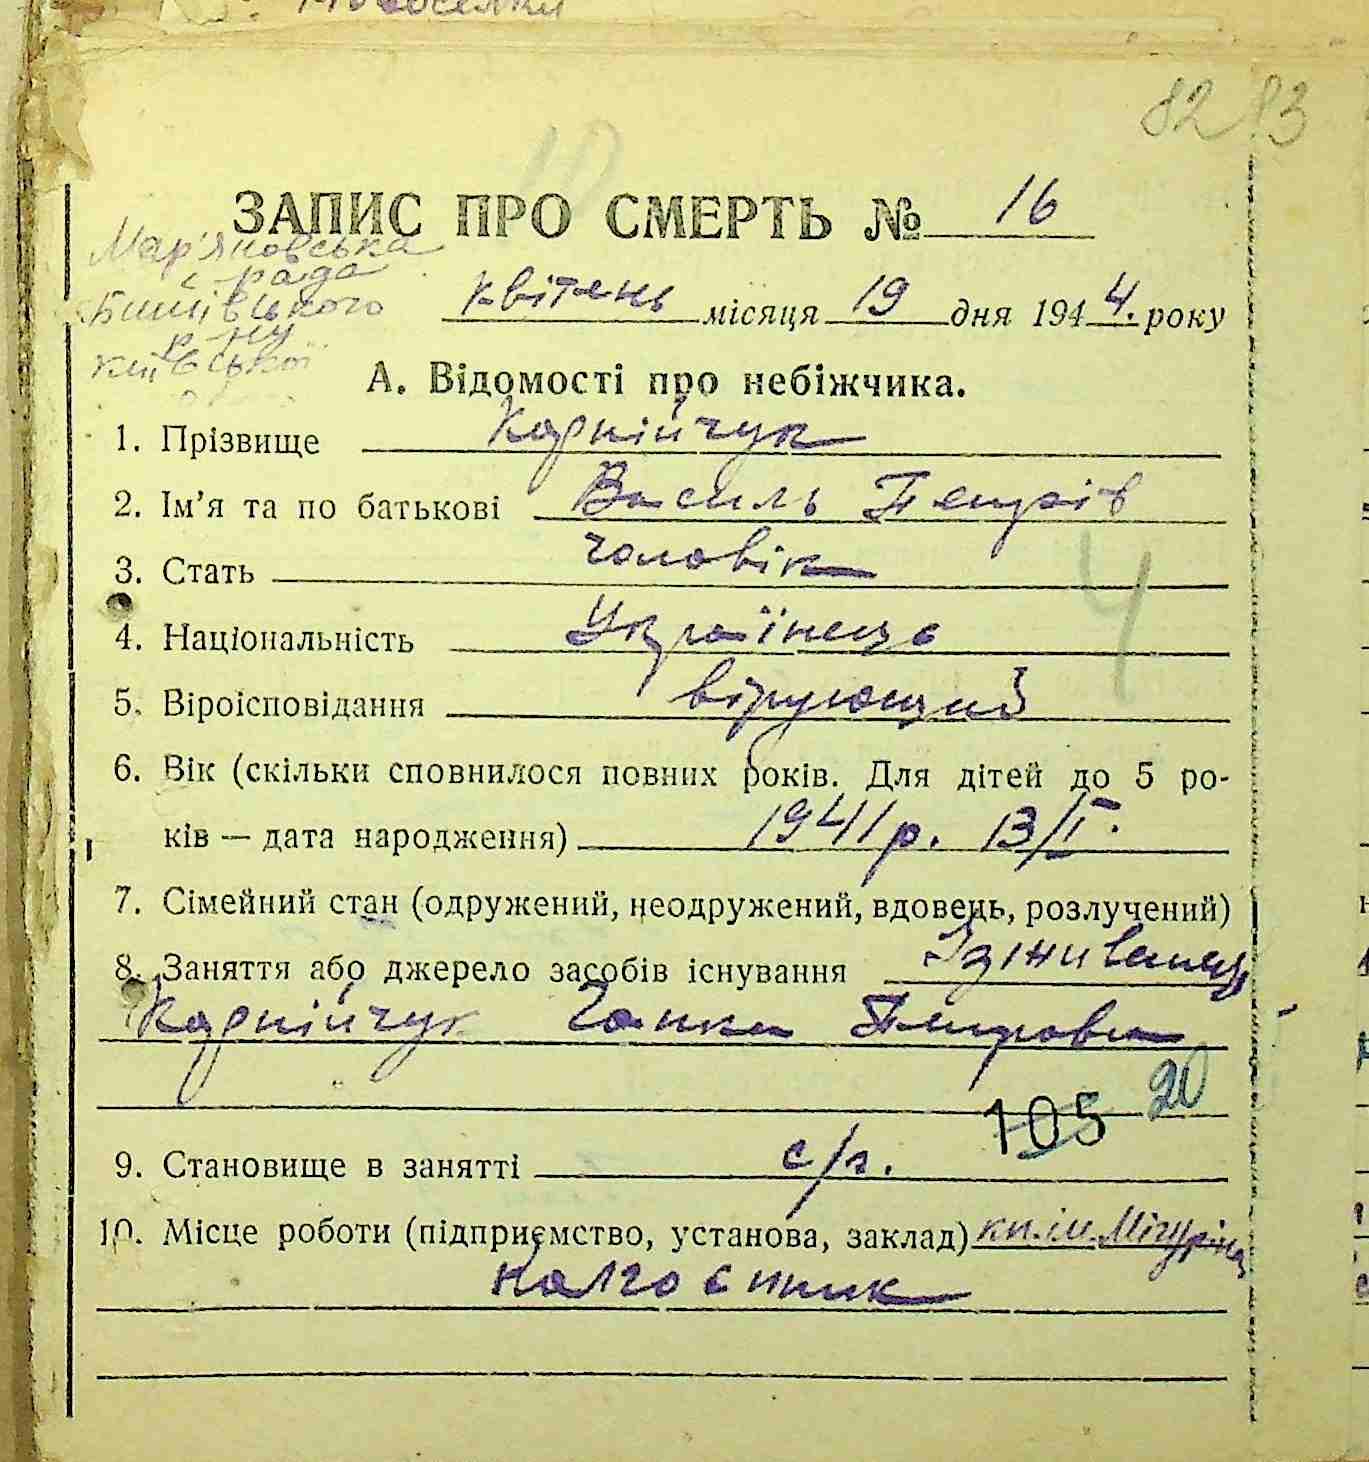 Новоселки
82 83
ЗАПИС ПРО СМЕРТЬ № 16
Мар'яновська
с рада
Бишівського
р-ну
Київської
квітень місяця 19 дня 1944. року
А. Відомості про небіжчика.
1. Прізвище Карпійчук
2. Ім'я та по батькові Василь Петрів
3. Стать чоловік
4
4. Національність Українець
5. Віроісповідання вірующий
6. Вік (скільки сповнилося повних років. Для дітей до 5 ро-
ків — дата народження) 1941 р. 13/I.
7. Сімейний стан (одружений, неодружений, вдовець, розлучений)
8. Заняття або джерело засобів існування Ізживанец
Карпійчук Ганка Петровна
105 20
9. Становище в занятті с/г.
10. Місце роботи (підприємство, установа, заклад) кп. ім. Мічуріна
колгостник